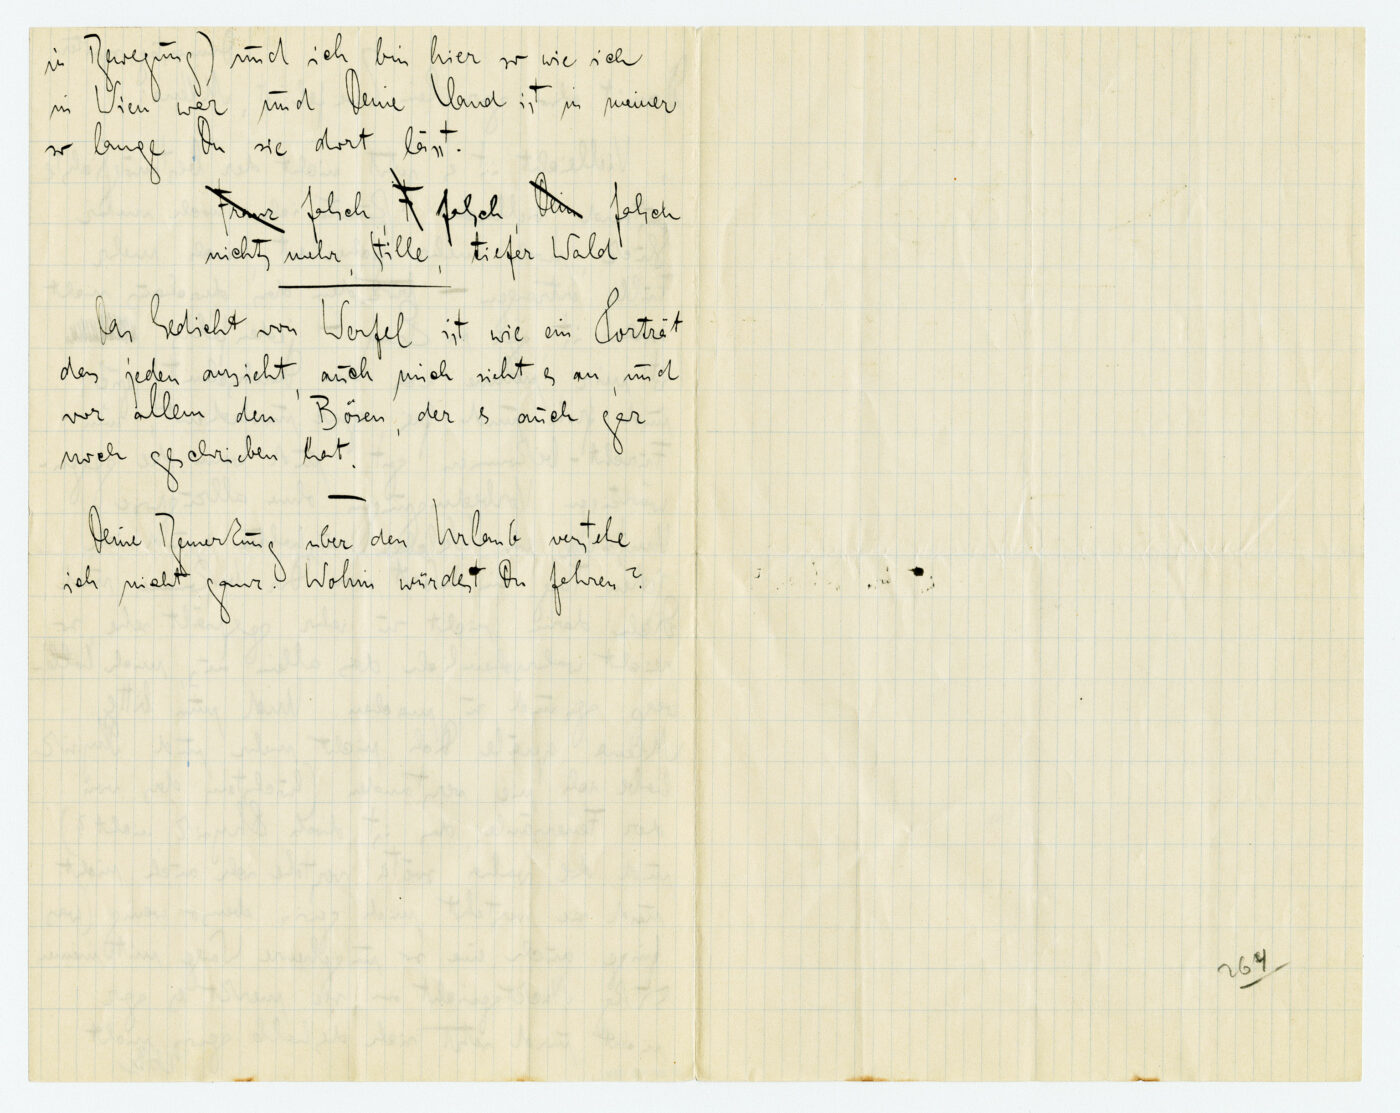 in Bewegung) und ich bin hier so wie ich
in Wien war und Deine Hand ist in meiner
so lange Du sie dort lässt.
Franz falsch, F falsch, Dein falsch
nichts mehr, Stille, tiefer Wald
Das Gedicht von Werfel ist wie ein Porträt
das jeden ansieht, auch mich sieht es an, und
vor allem den Bösen, der es auch gar
noch geschrieben hat.
Deine Bemerkung über den Urlaub verstehe
ich nicht ganz. Wohin würdest Du fahren?
264